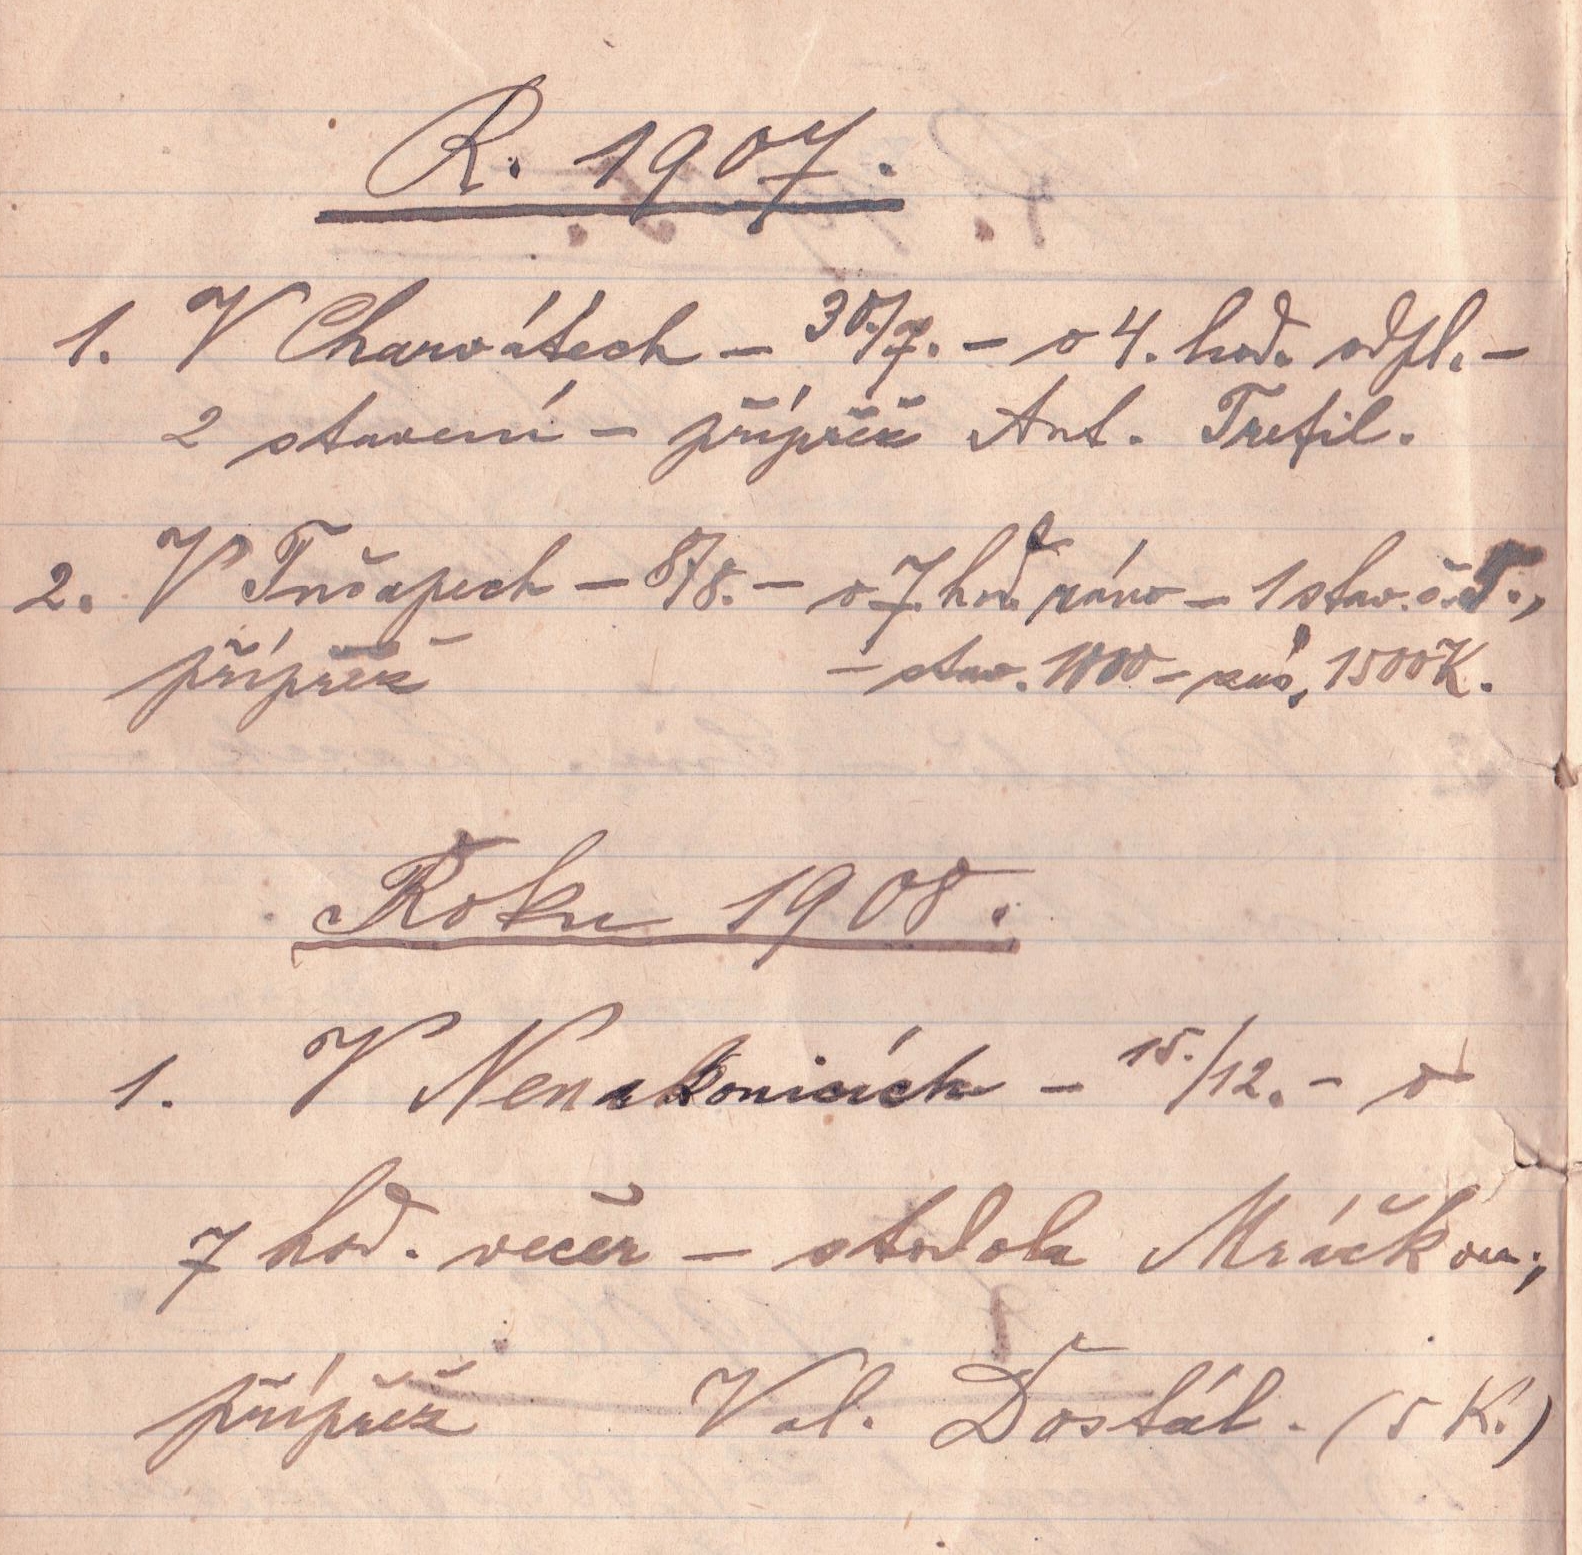 R. 1907.
1. V Charvátech – 30./7. – o 4. hod. odpl. –
2 stavení – přípřež Ant. Trefil.
2. V Tučapech – 8/8. – o 7. hod. ráno – 1 stav. č. 5.,
přípřež – stav. 1000 – zás. 1500 K.
Roku 1908.
1. V Nenakonicích – 15./12. – o
7 hod. večer – stodola Mráčkova;
přípřež Val. Dostál. (5 K.)